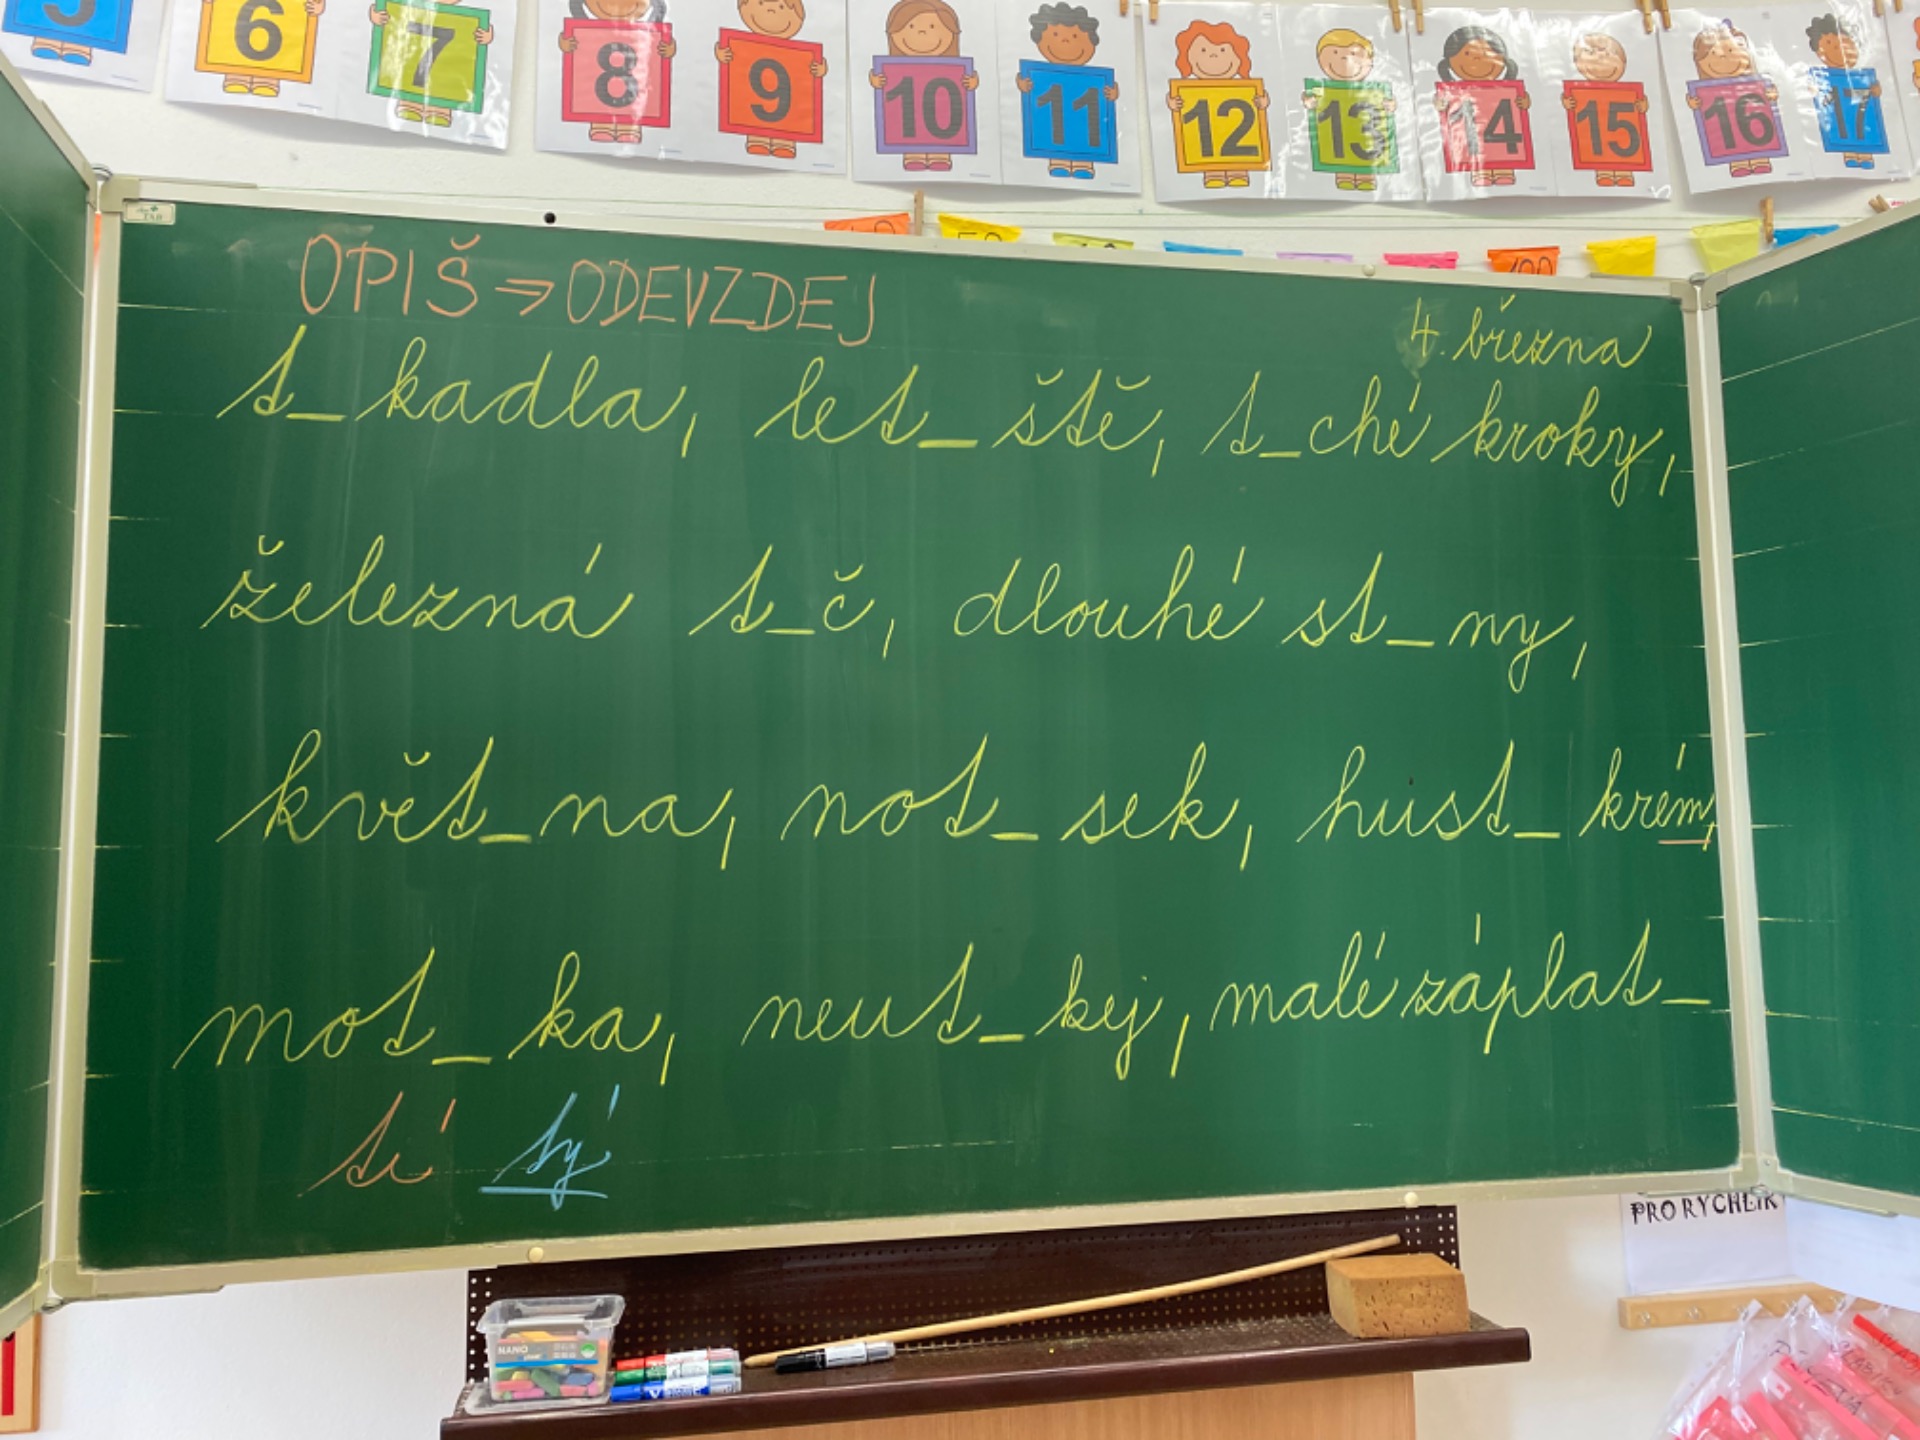 5 6 7 8 9 10 11 12 13 14 15 16 17
OPIŠ ⇒ ODEVZDEJ
4. března
t_kadla, let_ště, t_ché kroky,
železná t_č, dlouhé st_ny,
květ_na, not_sek, hust_ krém,
mot_ka, neut_kej, malé záplat_
tí tý
PRO RYCHLÍK
NANO